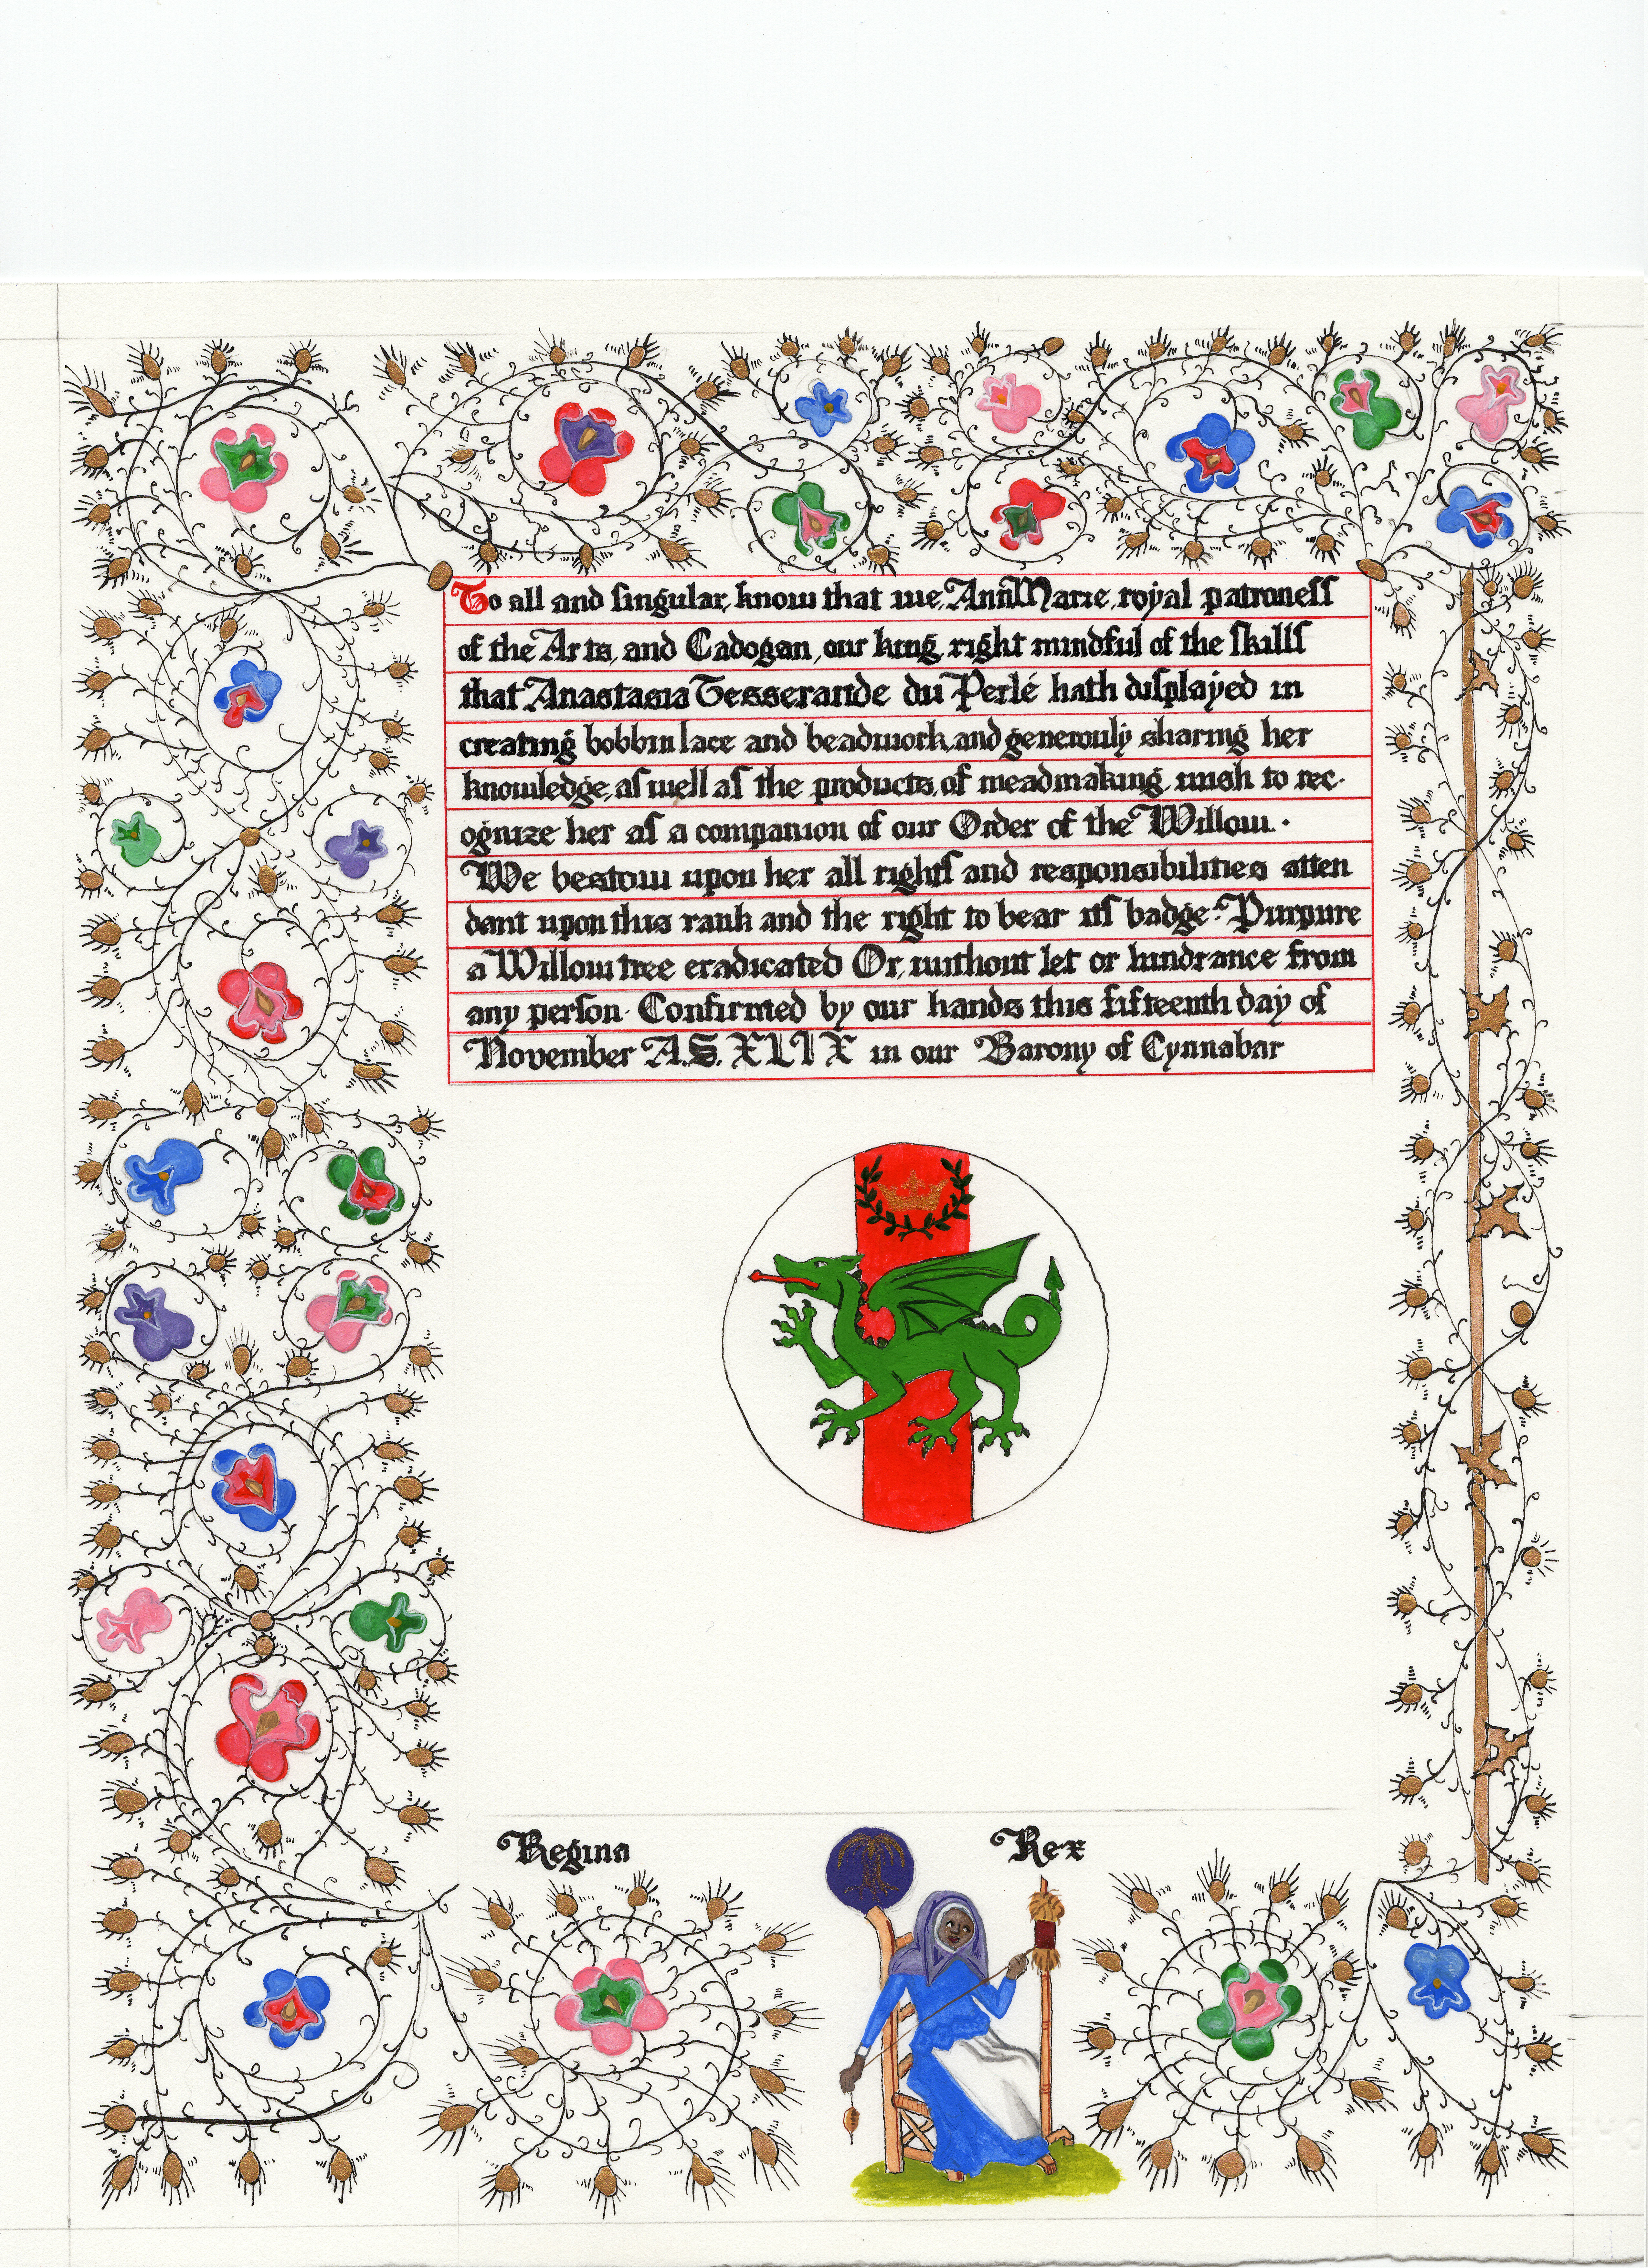 To all and singular, know that we, AnnMarie, royal patroness
of the Arts, and Cadogan, our king, right mindful of the skills
that Anastasia Tesserande du Perlé hath displayed in
creating bobbin lace and beadwork, and generously sharing her
knowledge, as well as the products, of meadmaking, wish to rec-
ognize her as a companion of our Order of the Willow.
We bestow upon her all rights and responsibilities atten
dant upon this rank and the right to bear its badge: Purpure
a Willow tree eradicated Or, without let or hindrance from
any person. Confirmed by our hands this fifteenth day of
November A.S. XLIX in our Barony of Cynnabar
Regina Rex